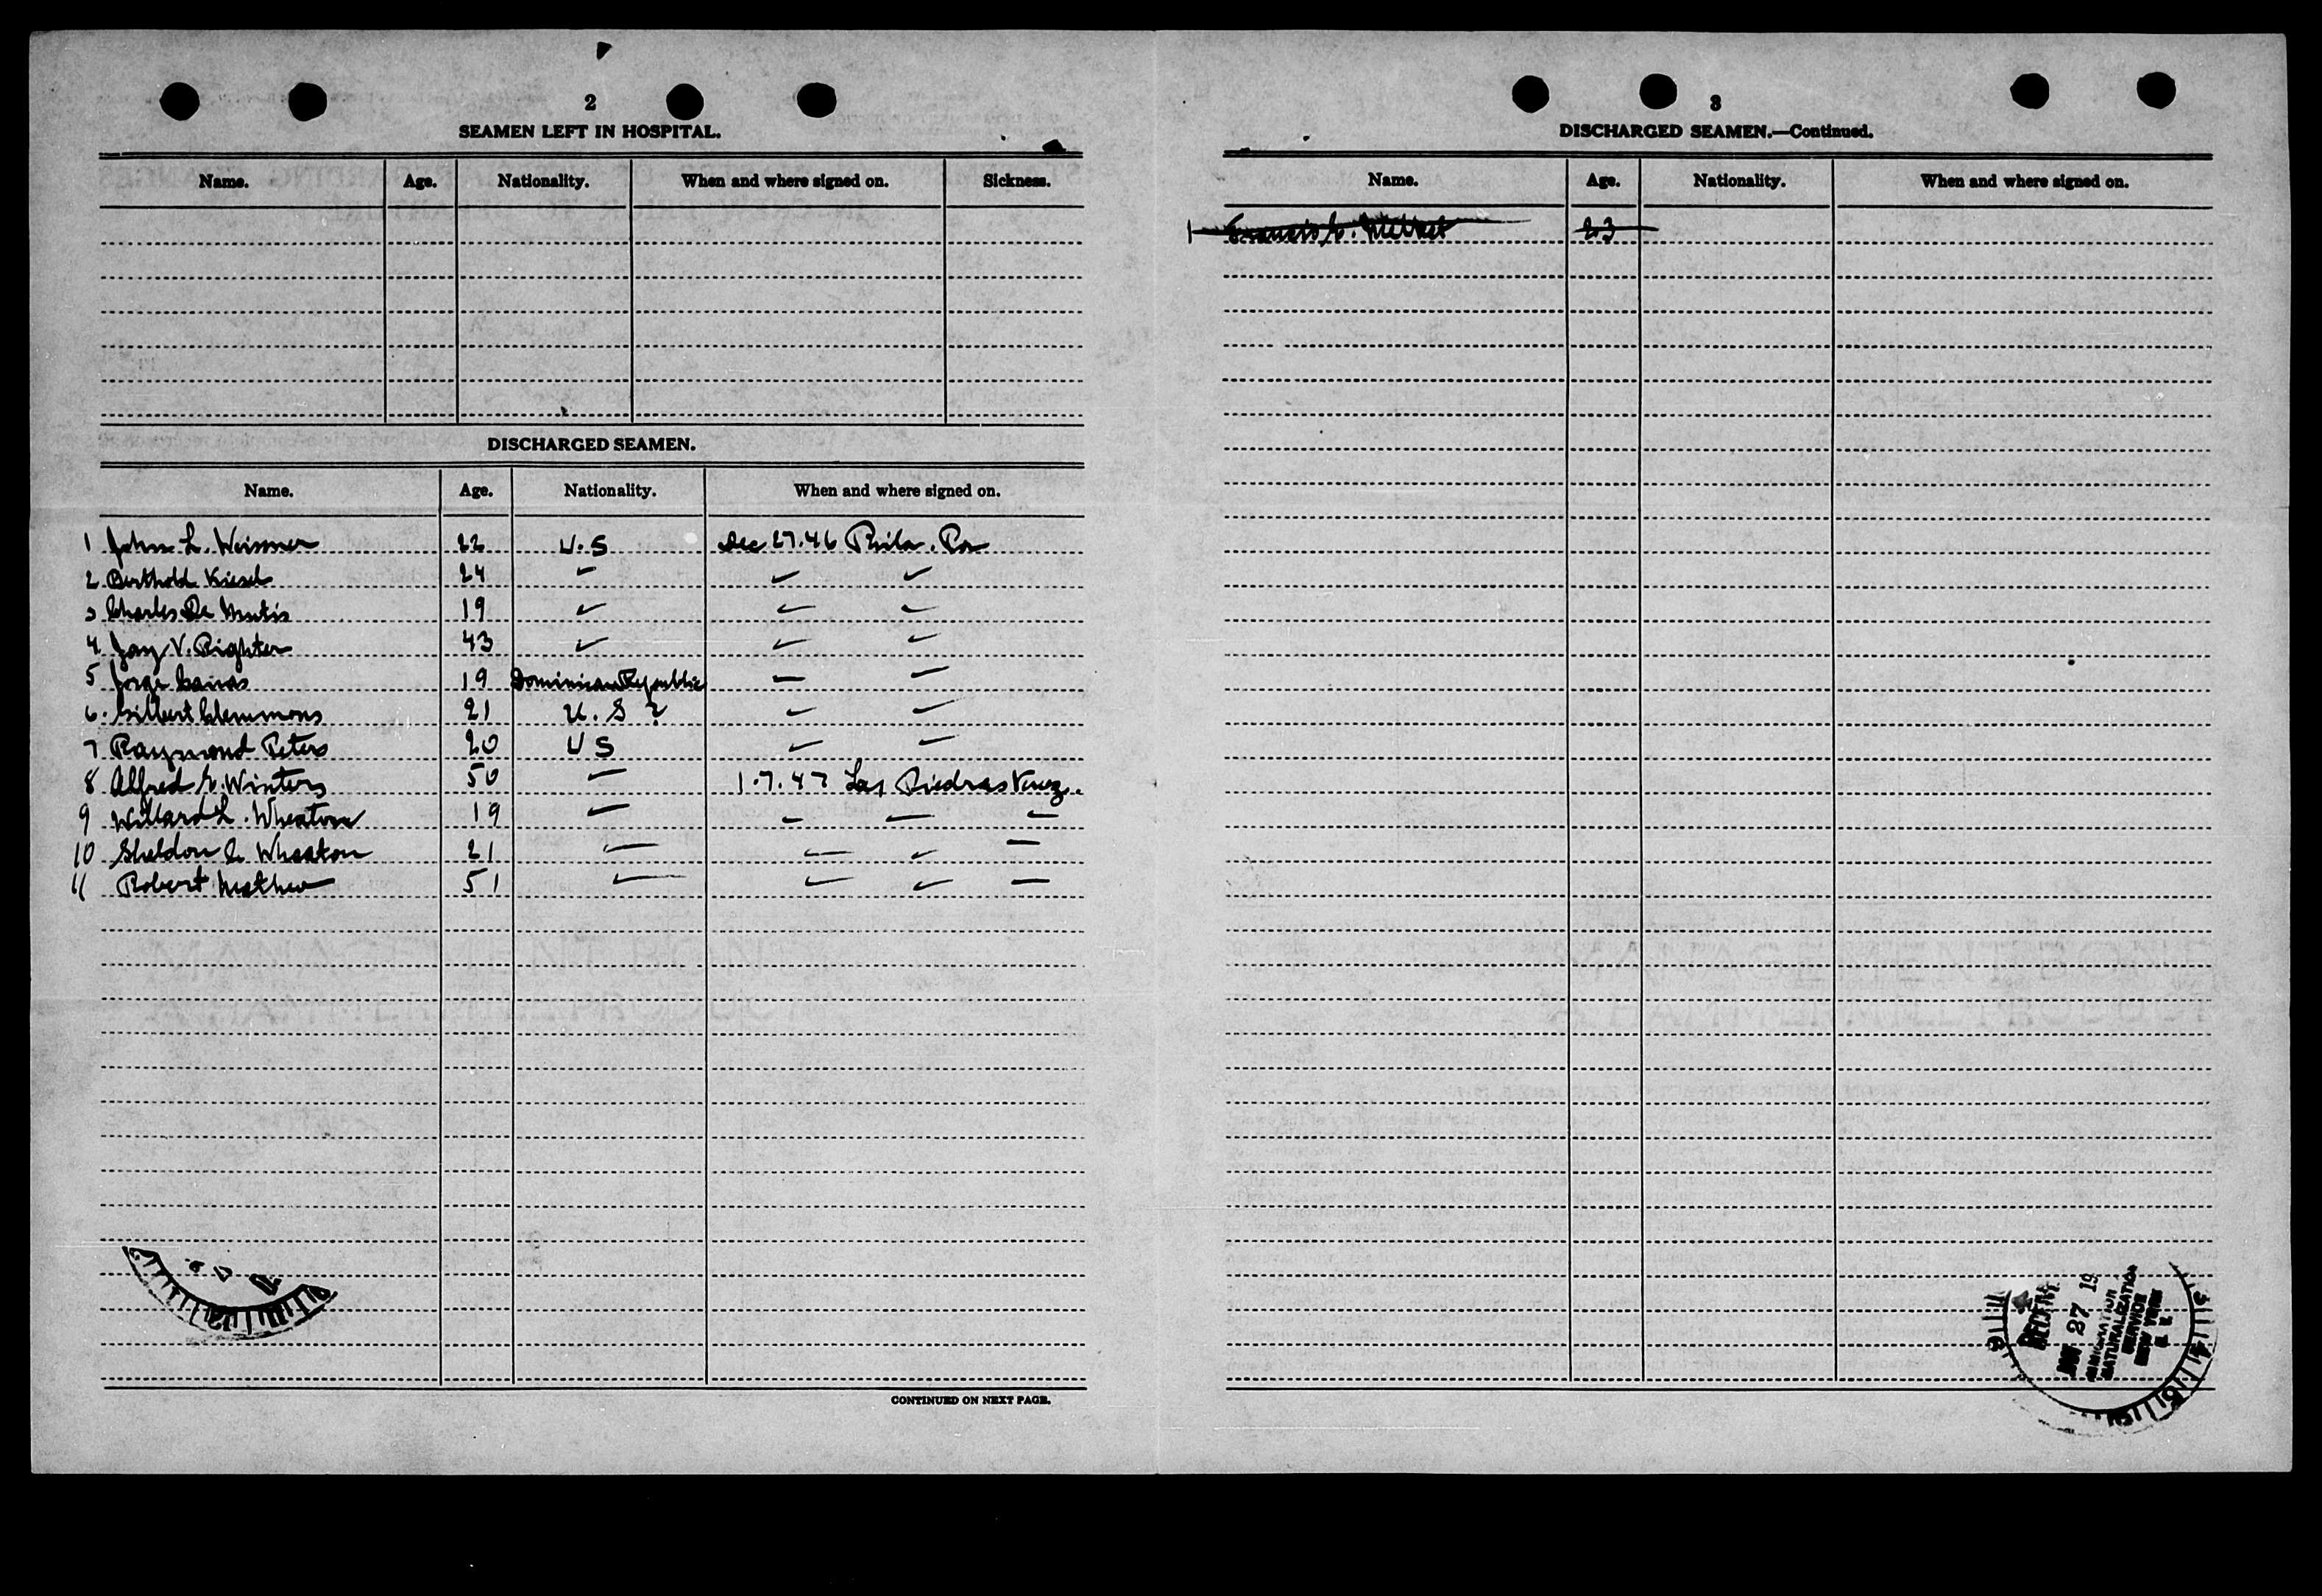 2
SEAMEN LEFT IN HOSPITAL.
Name. Age. Nationality. When and where signed on. Sickness.
DISCHARGED SEAMEN.
Name. Age. Nationality. When and where signed on.
1 John L. Weismer 22 U.S Dec 27.46 Phila. Pa
2 Berthold Kiesel 24
3 Charles De Mutis 19
4 Jay V. Righter 43
5 Jorge 19 Dominican Republic
6. Gilbert Clemmons 21 U.S ?
7 Raymond Peters 20 U S
8 Alfred G. Winters 50 1.7.47 Las Piedras Venez.
9 Willard L. Wheaton 19
10 Sheldon C Wheaton 21
11 Robert Mathew 51
CONTINUED ON NEXT PAGE.
3
DISCHARGED SEAMEN.—Continued.
Name. Age. Nationality. When and where signed on.
1 Francis 23
27 19
IMMIGRATION
NATURALIZATION
SERVICE
NEW YORK
N. Y.